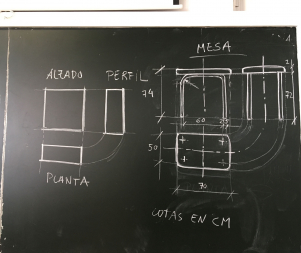 MESA
ALZADO PERFIL
74
72
60
50
PLANTA
70
COTAS EN CM